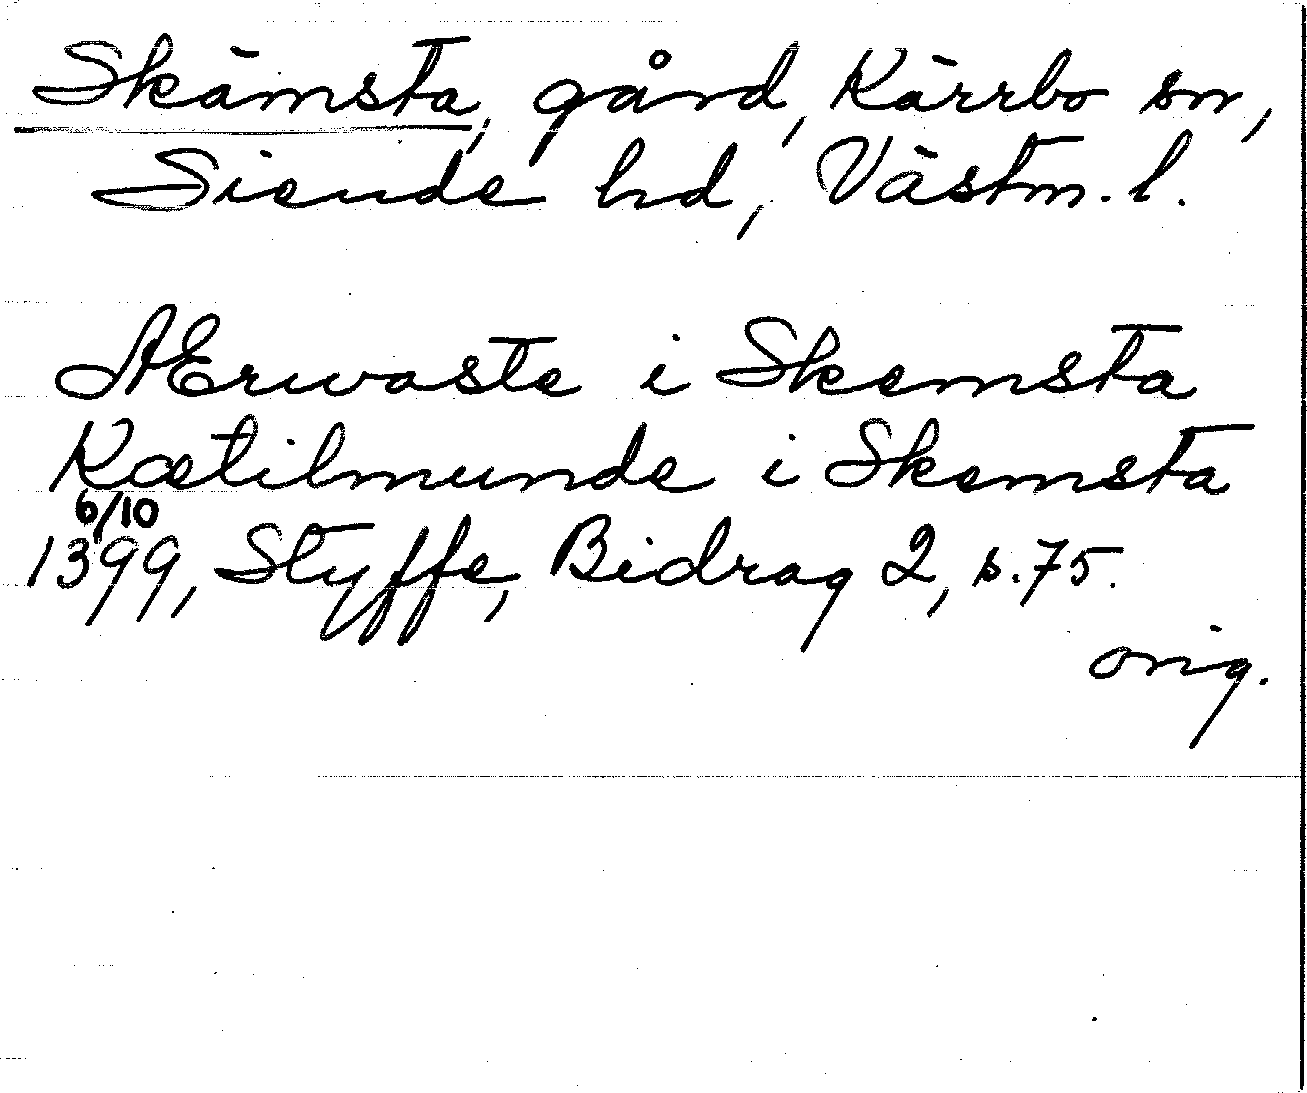 Skämsta, gård, Kärrbo sn,
Siende hd, Västm. l.
AErwaste i Skemsta
Kætilmunde i Skemsta
6/10
1399, Styffe, Bidrag 2, s. 75.
orig.